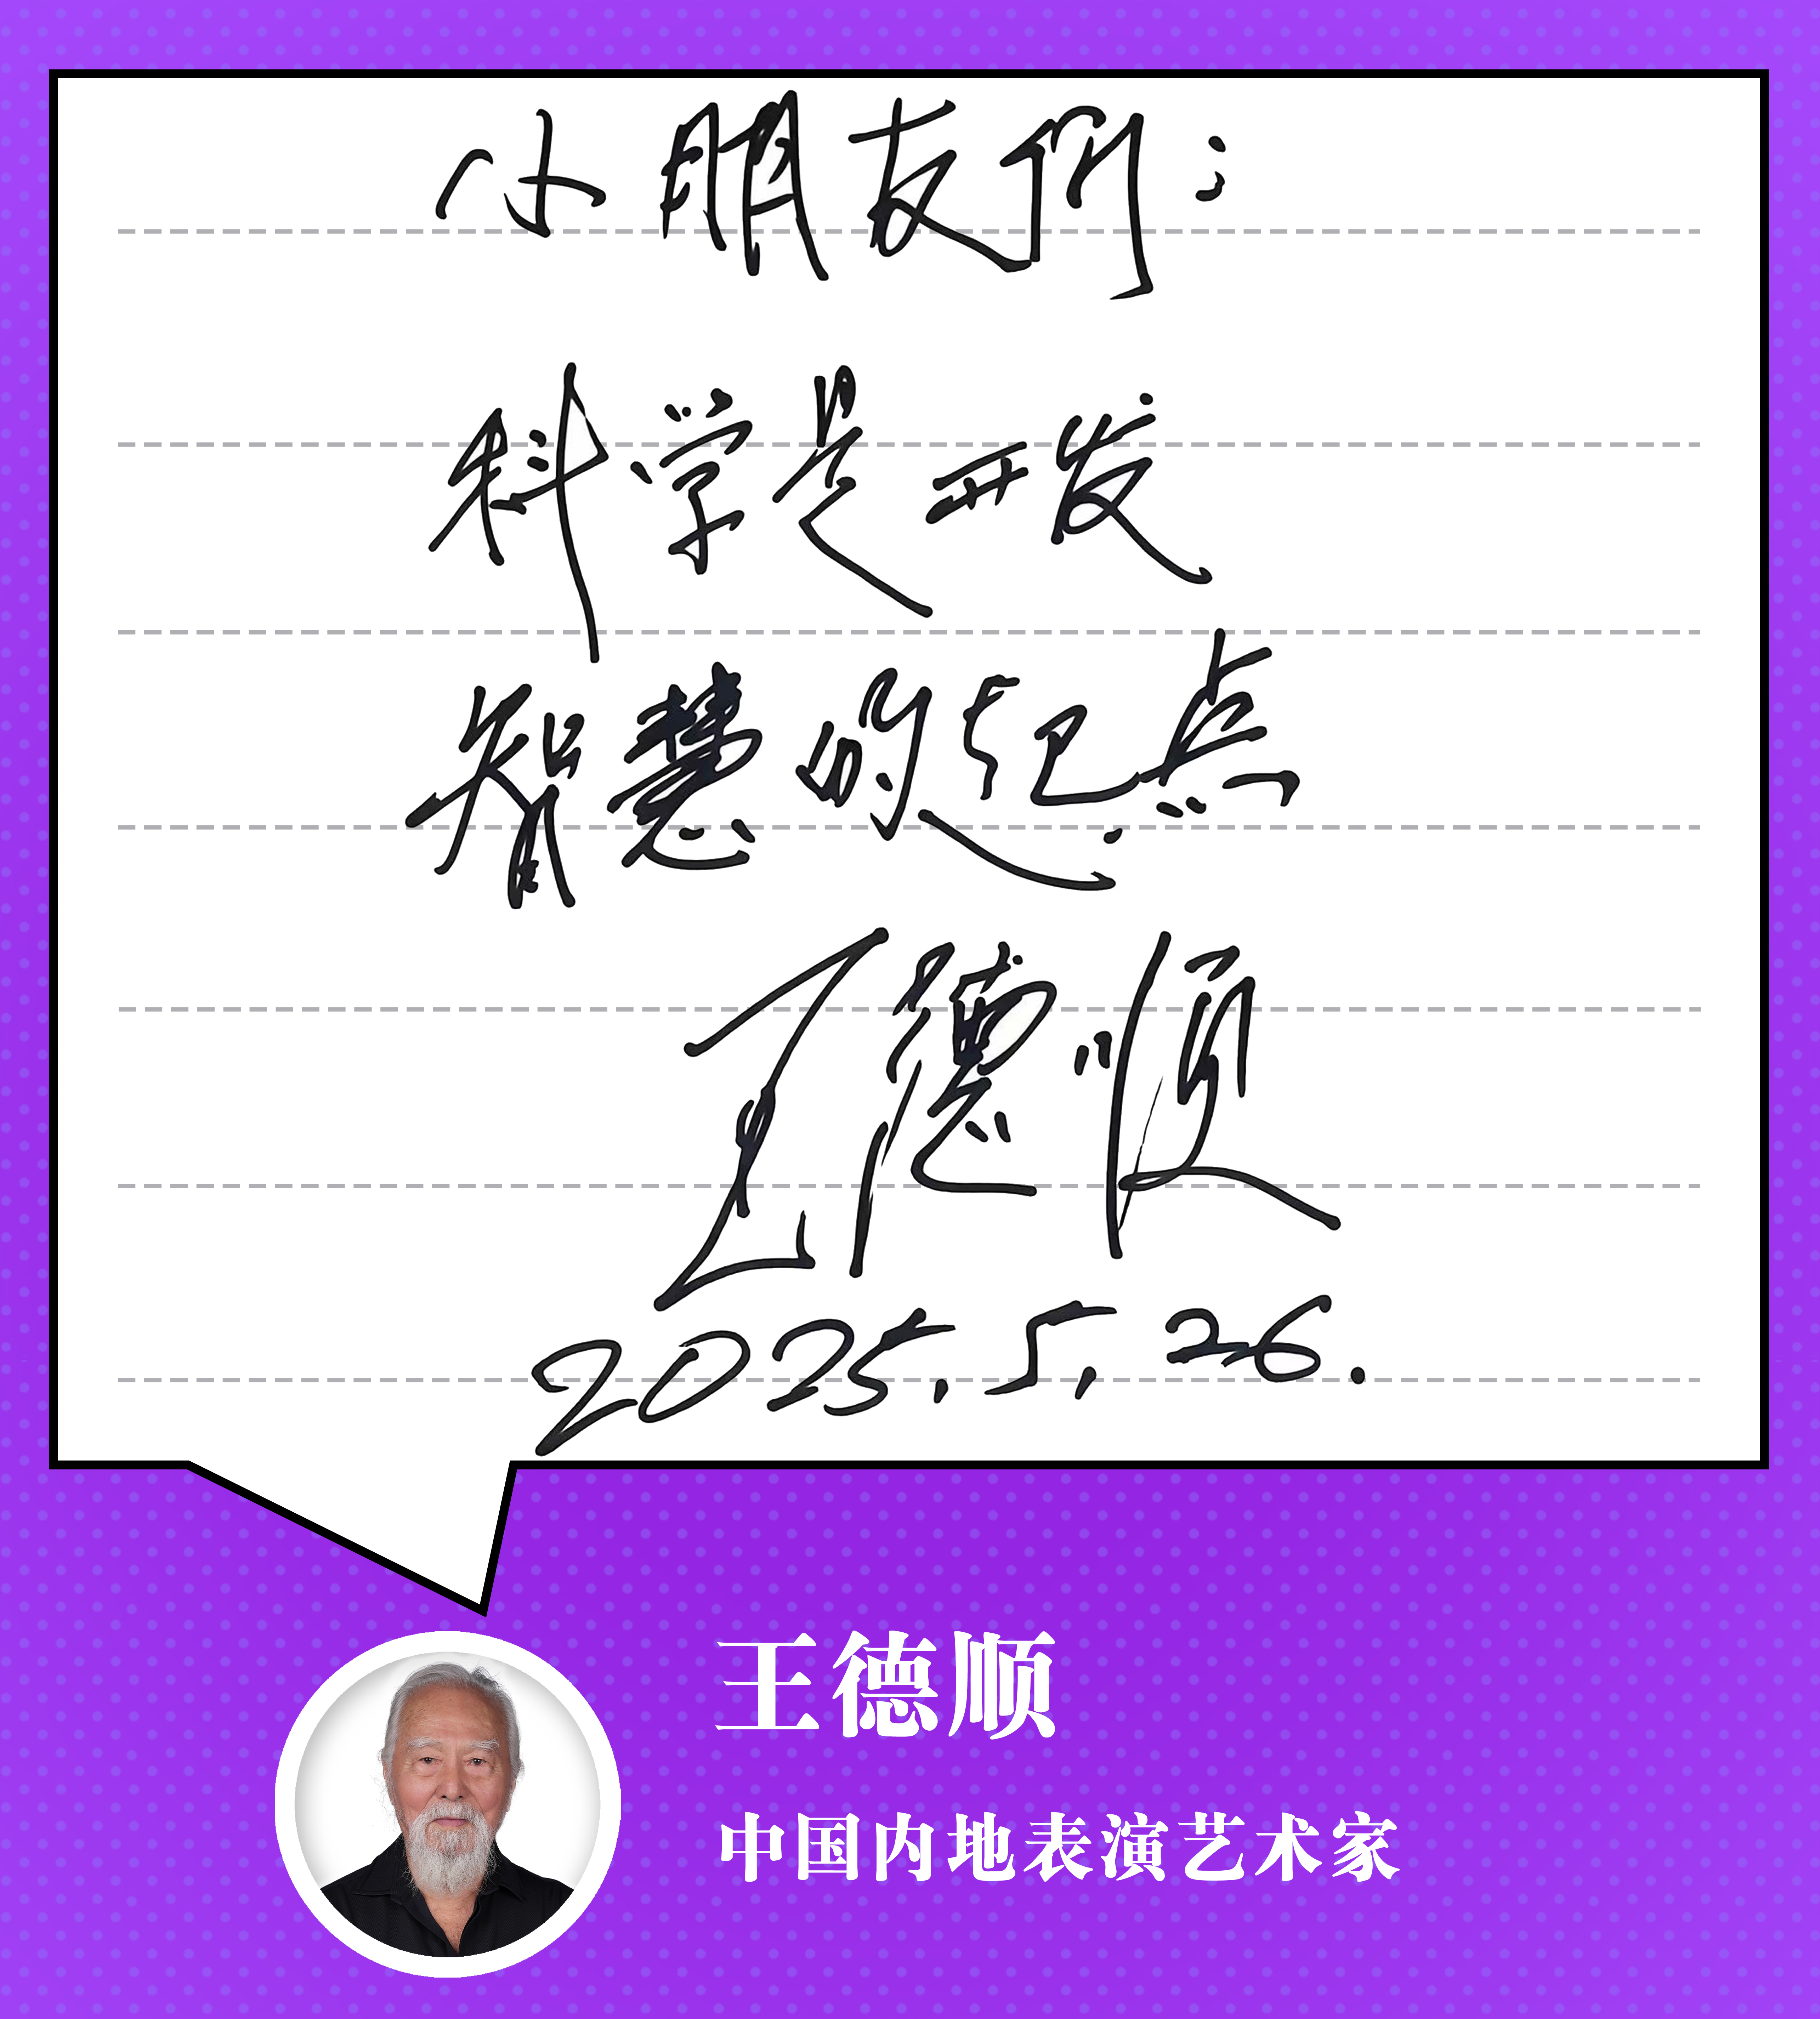 小朋友们：
科学是开发
智慧的起点
王德顺
2025.5.26.
王德顺
中国内地表演艺术家